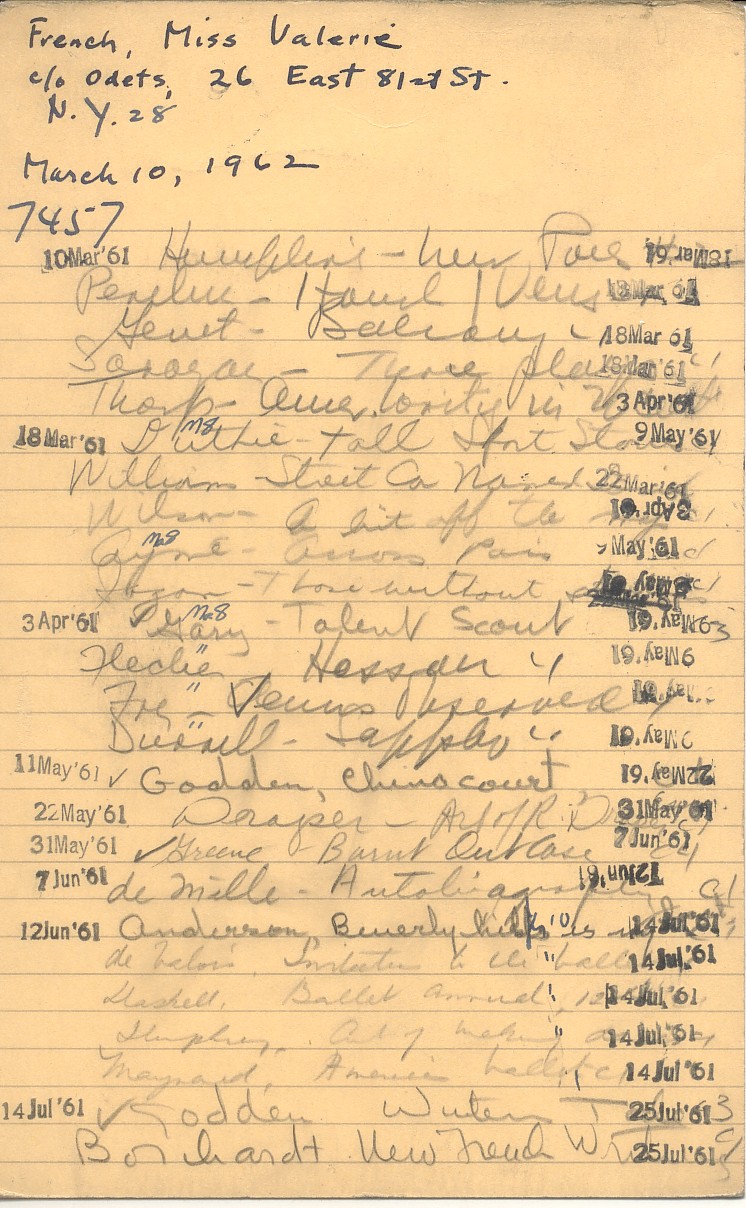 French, Miss Valerie
c/o Odets, 26 East 81st St.
N.Y. 28
March 10, 1962
7457
10 Mar '61 Humphries - New Poe 18 Mar '61
18 Mar '61
Genet - Balcony 18 Mar 61
Saroyan - Three plays 18 Mar '61
Thorp - Amer. in 3 Apr '61
18 Mar '61 Duthie - Tall Short Stories 9 May '61
Williams - Street Car Named 22 Mar '61
Wilson - A bit off the 3 Apr '61
Aymé - Across Paris 9 May '61
Those without
3 Apr '61 Gary - Talent Scout 9 May '61
Hessian 9 May '61
Fry " ✓ Venus Observed
Durrell - Sappho 9 May '61
11 May '61 ✓ Godden, Chinacourt 22 May '61
22 May '61 Draper - Art of R. Draper 31 May '61
31 May '61 ✓ Greene - Burnt Out Case 7 Jun '61
7 Jun '61 de Mille - Autobiography 12 Jun '61
12 Jun '61 Anderson, Beverly hills is my 14 Jul '61
de Valois, Invitation to the ballet " 14 Jul '61
Haskell, Ballet annual, 14 Jul '61
Humphrey, Art of making " 14 Jul '61
Maynard, American ballet 14 Jul '61
14 Jul '61 ✓ Godden Winters T 25 Jul '61
Borchardt New French Writ 25 Jul '61